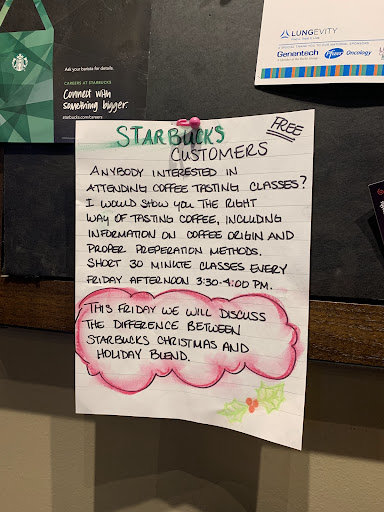 Ask your barista for details.
CAREERS AT STARBUCKS
Connect with
something bigger.
starbucks.com/careers
LUNGEVITY
Genentech Pfizer Oncology
FREE
STARBUCKS
CUSTOMERS
ANYBODY INTERESTED IN
ATTENDING COFFEE TASTING CLASSES?
I WOULD SHOW YOU THE RIGHT
WAY OF TASTING COFFEE, INCLUDING
INFORMATION ON COFFEE ORIGIN AND
PROPER PREPERATION METHODS.
SHORT 30 MINUTE CLASSES EVERY
FRIDAY AFTERNOON 3:30-4:00 PM.
THIS FRIDAY WE WILL DISCUSS
THE DIFFERENCE BETWEEN
STARBUCKS CHRISTMAS AND
HOLIDAY BLEND.